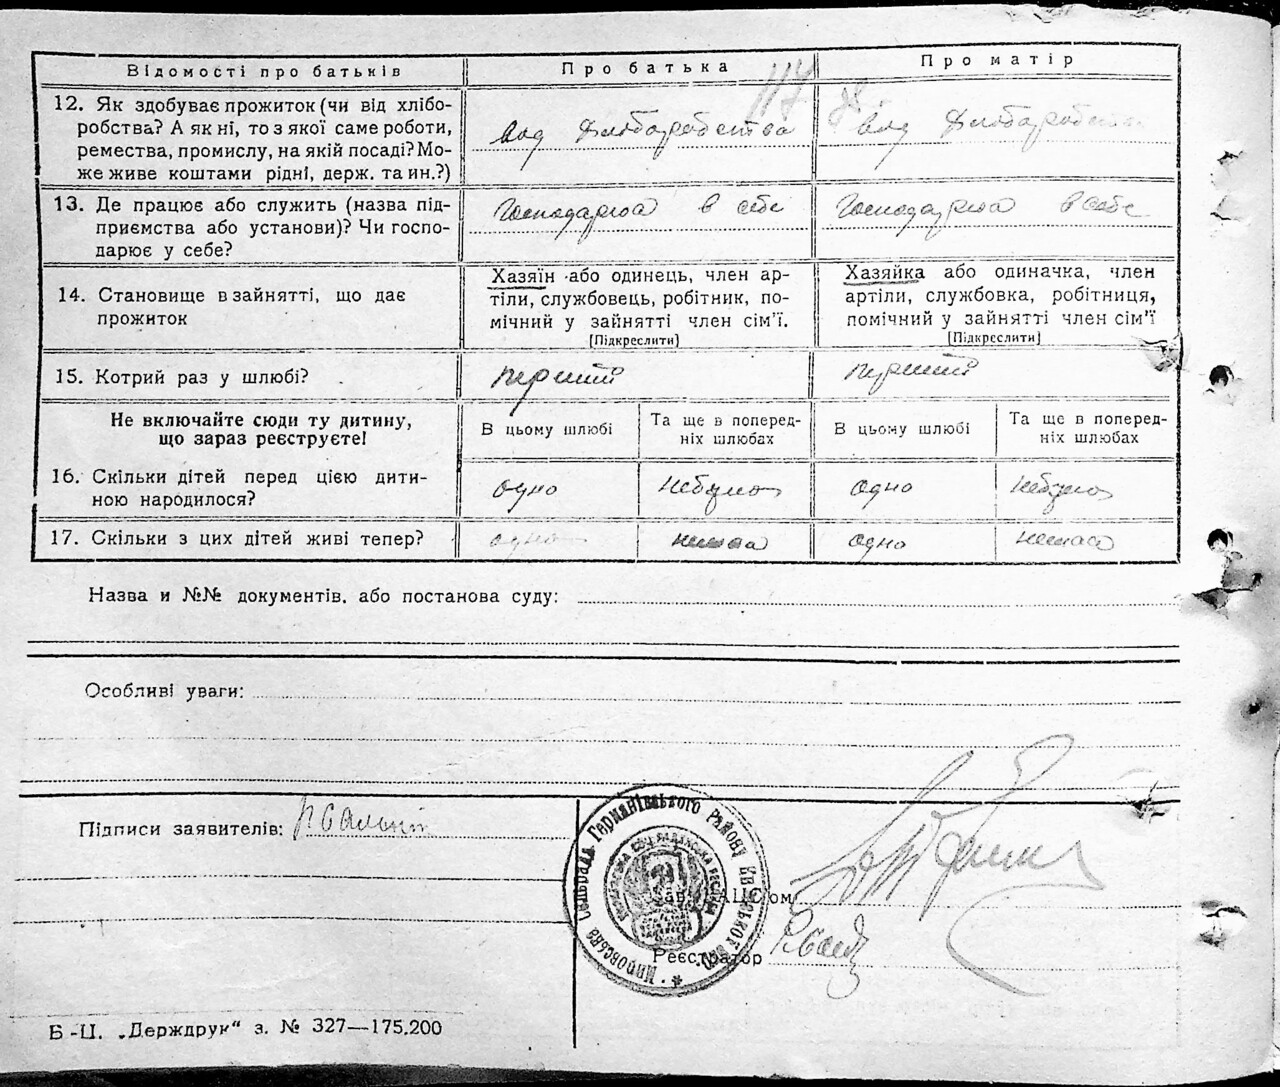 Відомості про батьків
Про батька
Про матір
12. Як здобуває прожиток (чи від хлібо-
робства? А як ні, то з якої саме роботи,
ремества, промислу, на якій посаді? Мо-
же живе коштами рідні, держ. та ин.?)
від хліборобства
від хліборобства
13. Де працює або служить (назва під-
приємства або установи)? Чи госпо-
дарює у себе?
Господарює в себе
Господарює в себе
14. Становище в зайнятті, що дає
прожиток
Хазяїн або одинець, член ар-
тіли, службовець, робітник, по-
мічний у зайнятті член сім'ї.
[Підкреслити]
Хазяйка або одиначка, член
артіли, службовка, робітниця,
помічний у зайнятті член сім'ї
[Підкреслити]
15. Котрий раз у шлюбі?
перший
перший
Не включайте сюди ту дитину,
що зараз реєструєте!
В цьому шлюбі
Та ще в поперед-
ніх шлюбах
В цьому шлюбі
Та ще в поперед-
ніх шлюбах
16. Скільки дітей перед цією дити-
ною народилося?
одно
небуло
одно
небуло
17. Скільки з цих дітей живі тепер?
одно
немаа
одно
немаа
Назва и №№ документів, або постанова суду:
Особливі уваги:
Підписи заявителів:
Мировська Сельрада Германівського Району Київської
Зав. ЗАЦСом
Реєстратор
Б-Ц. „Держдрук“ з. № 327—175.200